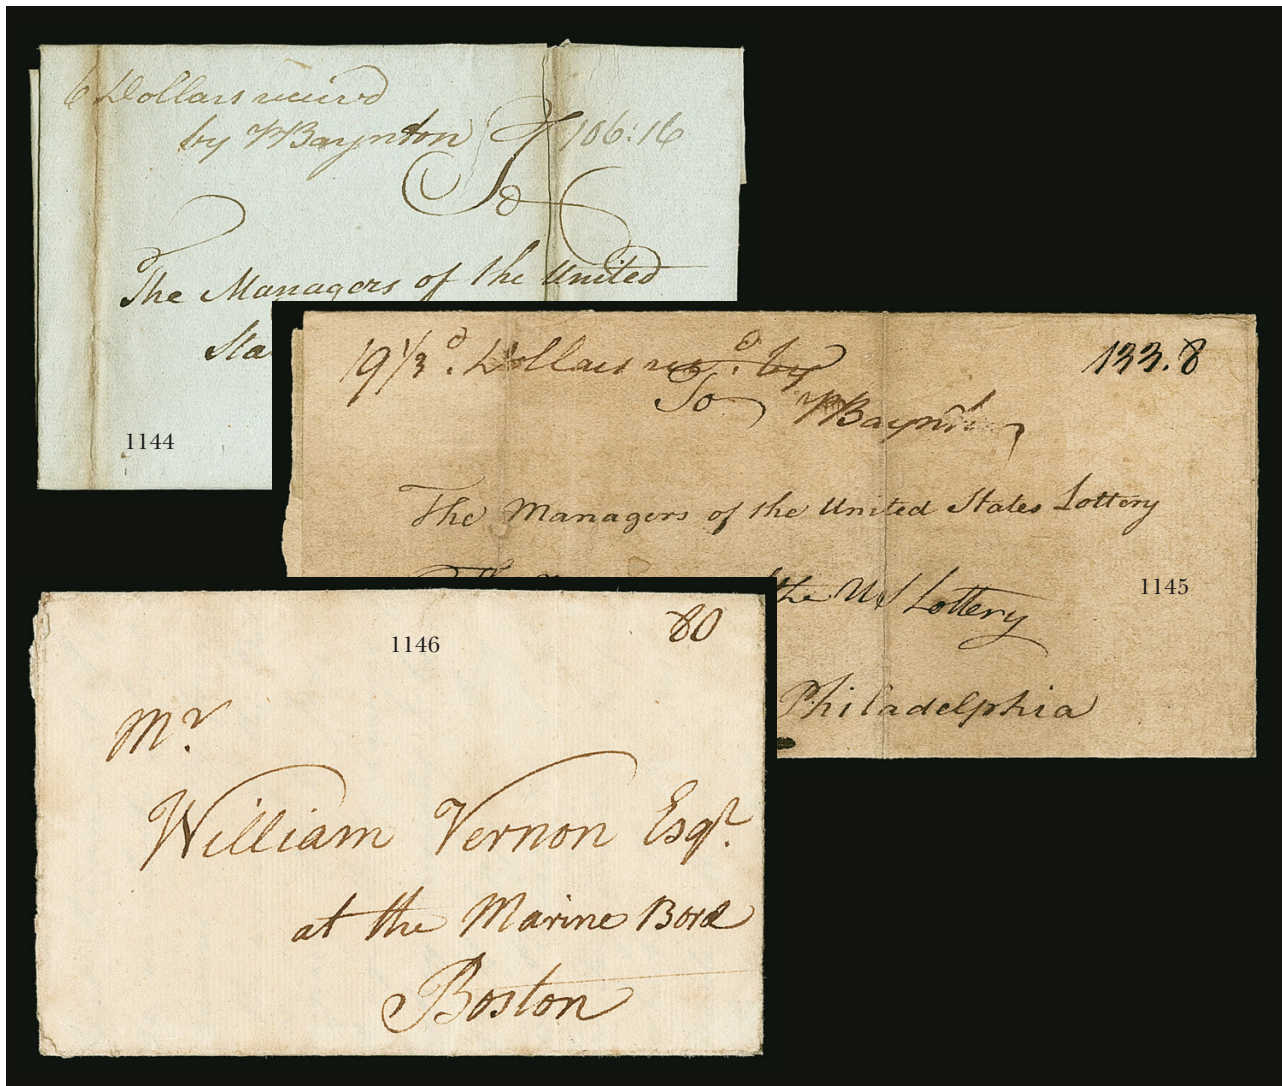 6 Dollars receivd
by PBaynton 106:16
To
The Managers of the United
Sta
1144
19 1/3d. Dollars recd. by
133.8
To PBaynton
The Managers of the United States Lottery
the US Lottery
1145
Philadelphia
80
1146
Mr.
William Vernon Esqr.
at the Marine Bord
Boston